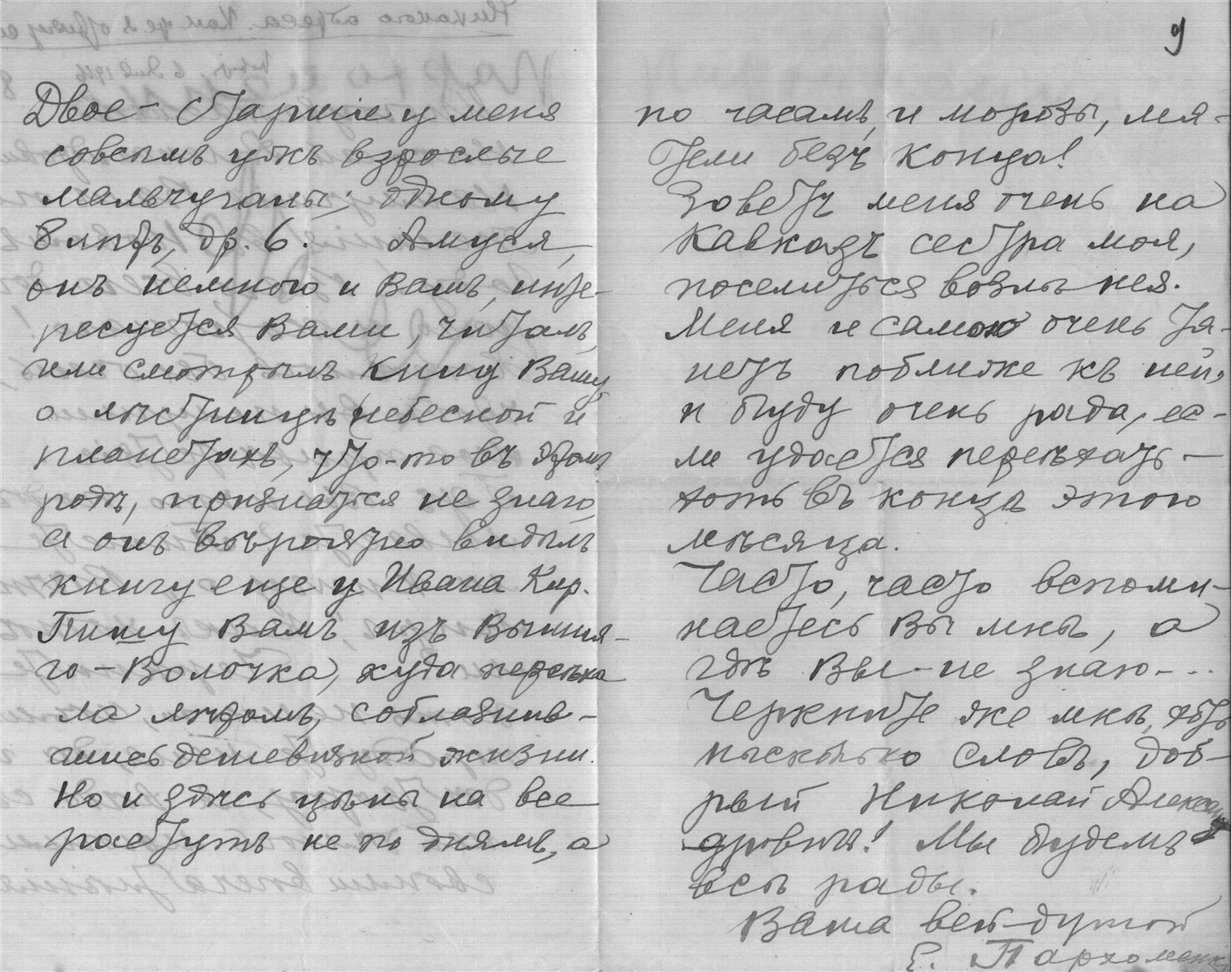 9
Двое - старшіе у меня
совсѣмъ ужъ взрослые
мальчуганы; одному
8 лѣтъ, др. 6. Амуся,
онъ немного и Вамъ, инте-
ресуется Вами, читалъ,
или смотрѣлъ книгу Вашу
о лѣстницѣ небесной и
планетахъ, что-то въ этомъ
родѣ, признаться не знаю,
а онъ вѣроятно видѣлъ
книгу еще у Ивана Кир.
Пишу Вамъ изъ Вышня-
го-Волочка, куда переѣха
ла лѣтомъ, соблазнив-
шись дешевизной жизни.
Но и здѣсь цѣны на все
растутъ не по днямъ, а
по часамъ, и морозы, мя-
тели безъ конца!
Зоветъ меня очень на
Кавказъ сестра моя,
поселиться возлѣ нея.
Меня и самою очень тя-
нетъ поближе къ ней,
и буду очень рада, ес-
ли удастся переѣхать -
хоть въ концѣ этого
мѣсяца.
Часто, часто вспоми-
наетесь Вы мнѣ, а
гдѣ Вы - не знаю - ..
Черкните же мнѣ, хоть
нѣсколько словъ, доб-
рый Николай Алексан
дровичъ! Мы будемъ
всѣ рады.
Ваша всей душой
Е. Пархоменко